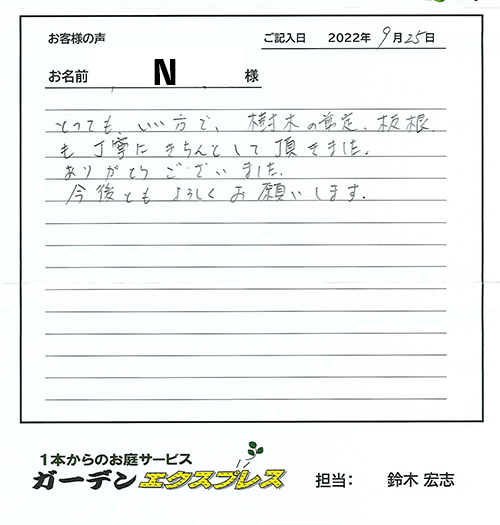 お客様の声
ご記入日 2022年 9月25日
お名前 N 様
とっても、いい方で、樹木の剪定、板根、
も丁寧にきちんとして頂きました。
ありがとうございました。
今後ともよろしくお願いします。
1本からのお庭サービス
ガーデンエクスプレス 担当: 鈴木 宏志